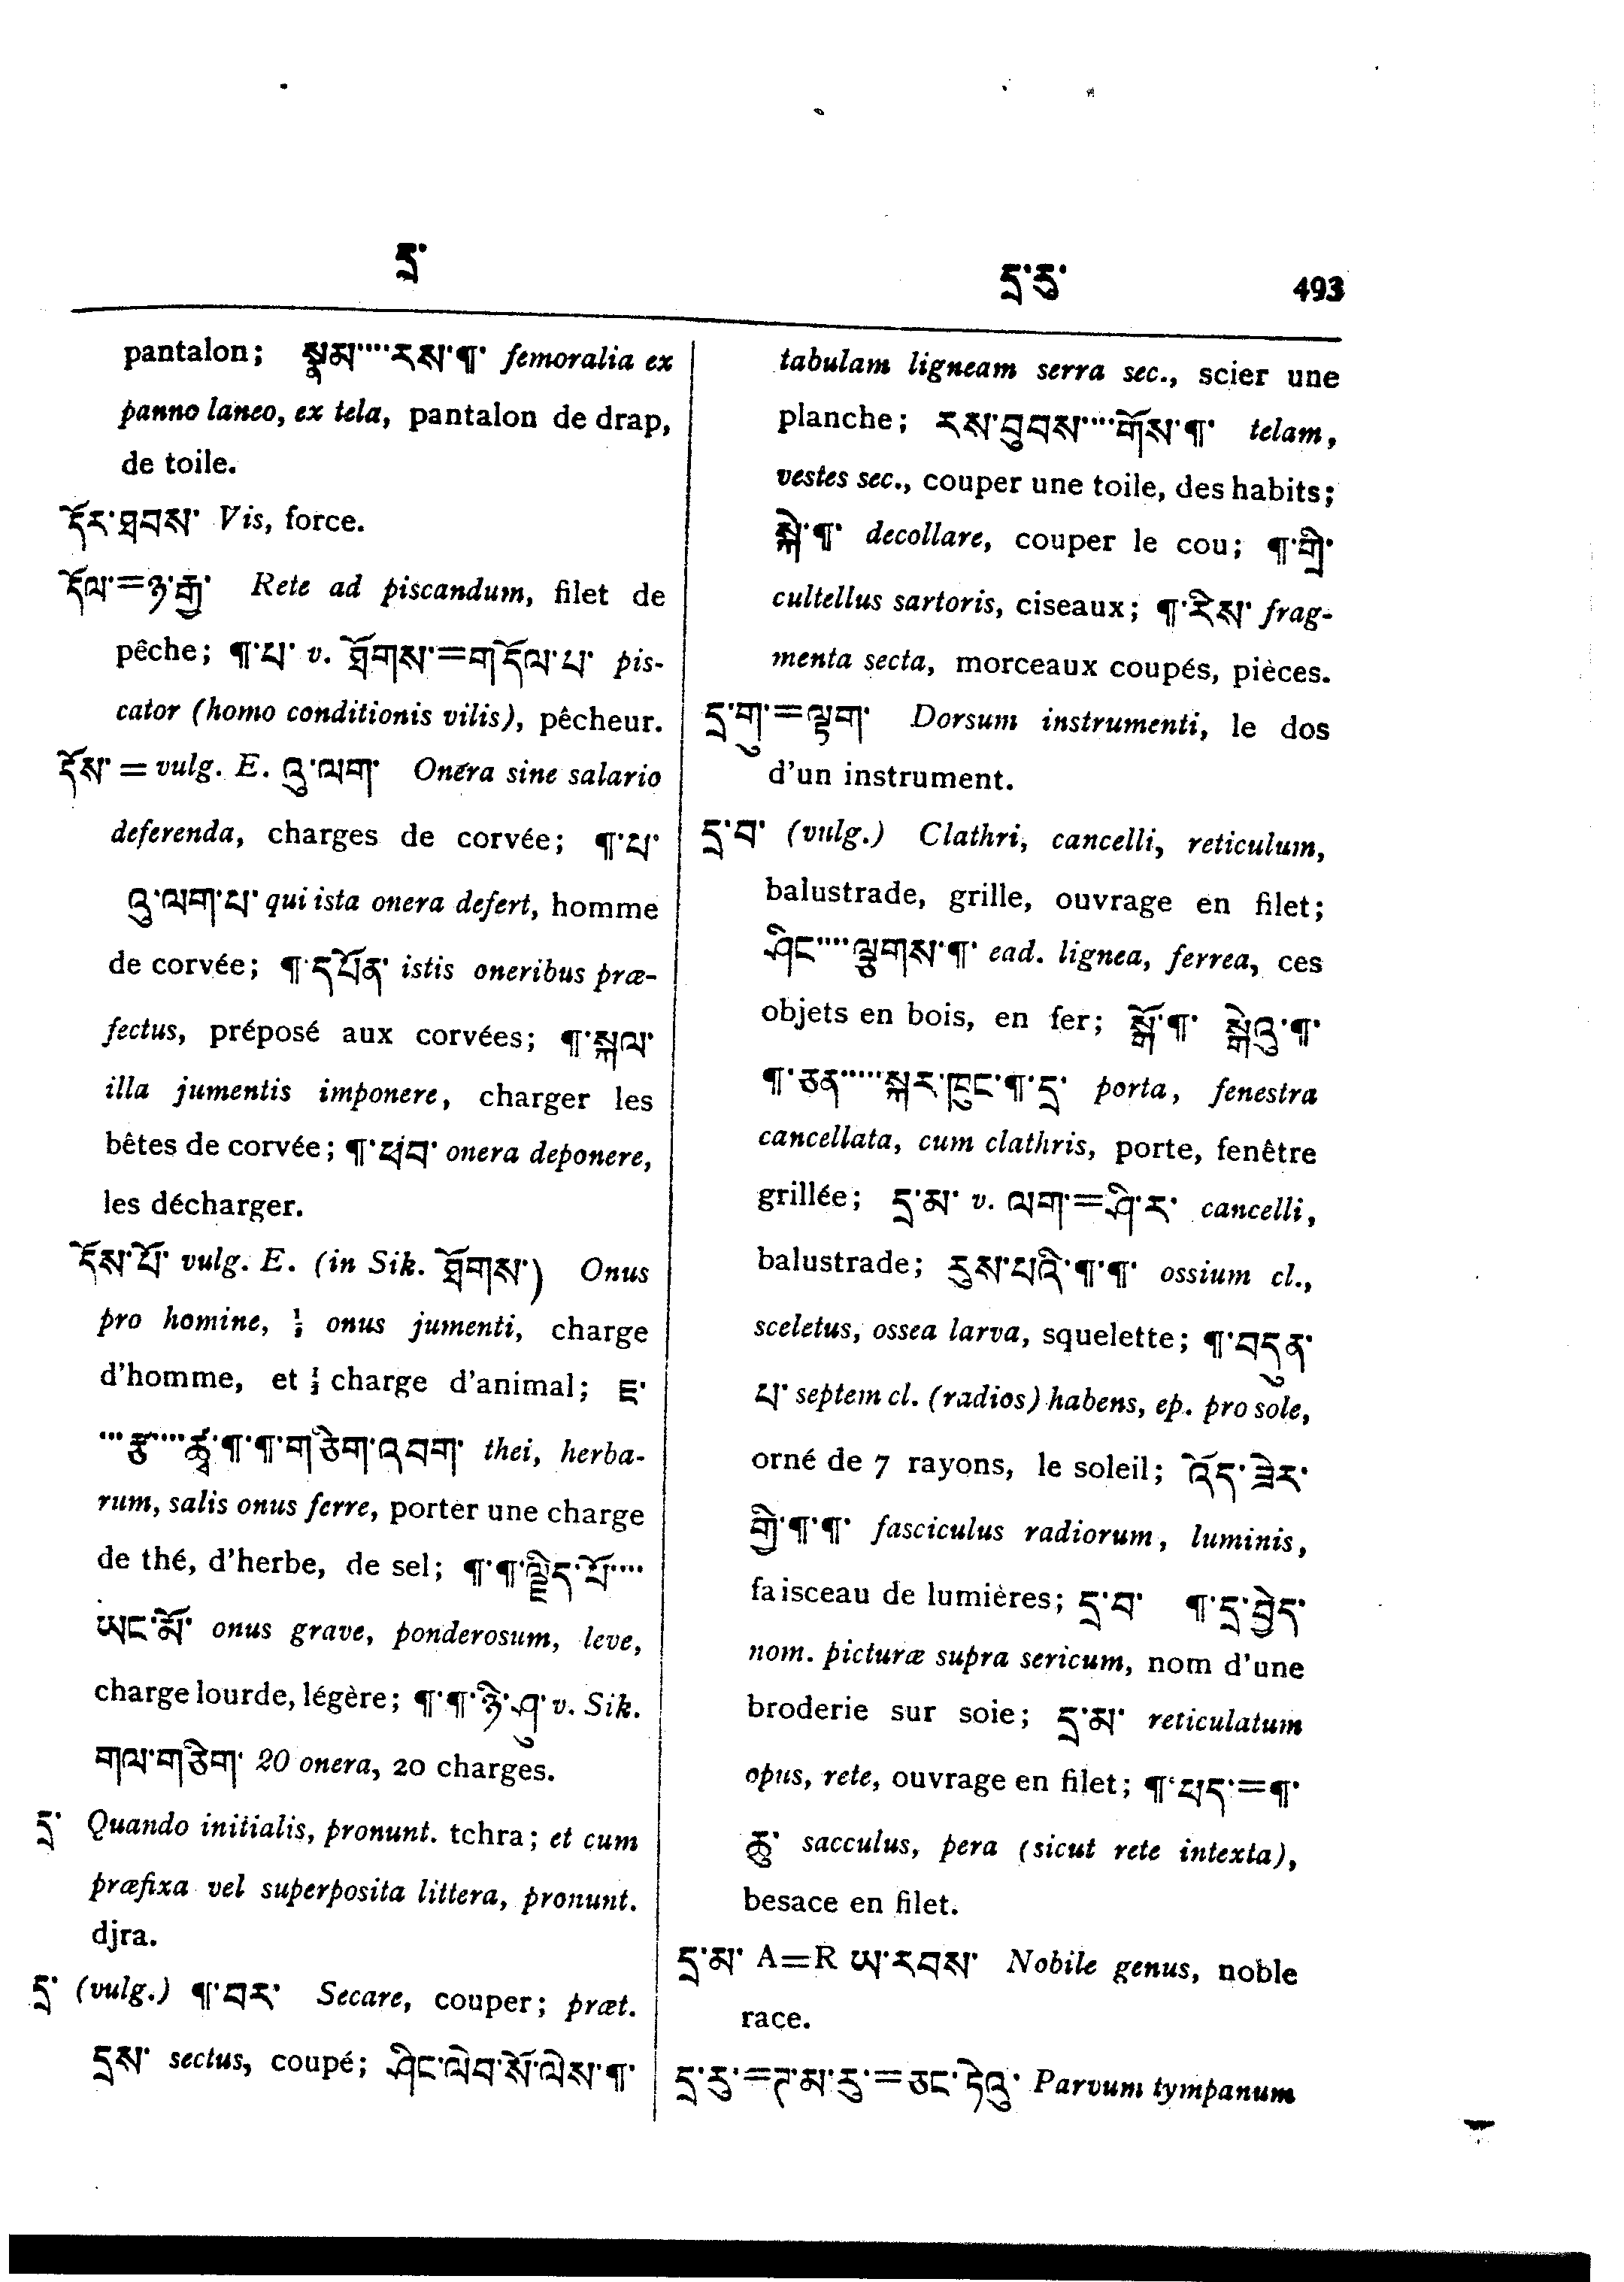 དྲ་
དྲ་རུ་ 493
pantalon; སྣམ་་་་རས་¶་ femoralia ex
panno laneo, ex tela, pantalon de drap,
de toile.
དོར་ཐབས་ Vis, force.
དོལ་=ཉ་རྒྱ་ Rete ad piscandum, filet de
pêche; ¶་པ་ v. ཐོགས་=གདོལ་པ་ pis-
cator (homo conditionis vilis), pêcheur.
དོས་ = vulg. E. འུ་ལག་ Onera sine salario
deferenda, charges de corvée; ¶་པ་
འུ་ལག་པ་ qui ista onera defert, homme
de corvée; ¶་དཔོན་ istis oneribus præ-
fectus, préposé aux corvées; ¶་སྐལ་
illa jumentis imponere, charger les
bêtes de corvée; ¶་ཕབ་ onera deponere,
les décharger.
དོས་པོ་ vulg. E. (in Sik. ཐོགས་) Onus
pro homine, ½ onus jumenti, charge
d'homme, et ½ charge d'animal; ཇ་
་་་རྩྭ་་་་ཚྭ་¶་¶་གཅིག་འབག་ thei, herba-
rum, salis onus ferre, porter une charge
de thé, d'herbe, de sel; ¶་¶་ལྗིད་པོ་་་་
ཡང་མོ་ onus grave, ponderosum, leve,
charge lourde, légère; ¶་¶་ཉི་ཤུ་ v. Sik.
གལ་གཅིག་ 20 onera, 20 charges.
དྲ་ Quando initialis, pronunt. tchra; et cum
præfixa vel superposita littera, pronunt.
djra.
དྲ་ (vulg.) ¶་བར་ Secare, couper; præt.
དྲས་ sectus, coupé; ཤིང་ལེབ་སོ་ལེས་¶་
tabulam ligneam serra sec., scier une
planche; རས་བུབས་་་་གོས་¶་ telam,
vestes sec., couper une toile, des habits;
སྐེ་¶་ decollare, couper le cou; ¶་གྲི་
cultellus sartoris, ciseaux; ¶་རིས་ frag-
menta secta, morceaux coupés, pièces.
དྲ་གུ་=ལྟག་ Dorsum instrumenti, le dos
d'un instrument.
དྲ་བ་ (vulg.) Clathri, cancelli, reticulum,
balustrade, grille, ouvrage en filet;
ཤིང་་་་ལྕུགས་¶་ ead. lignea, ferrea, ces
objets en bois, en fer; སྒོ་¶་ སྒེའུ་¶་
¶་ཅན་་་་་སྐར་ཁུང་¶་དྲ་ porta, fenestra
cancellata, cum clathris, porte, fenêtre
grillée; དྲ་མ་ v. ལག་=ཤི་ར་ cancelli,
balustrade; རུས་པའི་¶་¶་ ossium cl.,
sceletus, ossea larva, squelette; ¶་བདུན་
པ་ septem cl. (radios) habens, ep. pro sole,
orné de 7 rayons, le soleil; འོད་ཟེར་
གྱི་¶་¶་ fasciculus radiorum, luminis,
faisceau de lumières; དྲ་བ་ ¶་དྲ་བྱེད་
nom. picturæ supra sericum, nom d'une
broderie sur soie; དྲ་མ་ reticulatum
opus, rete, ouvrage en filet; ¶་པད་=¶་
ཆུ་ sacculus, pera (sicut rete intexta),
besace en filet.
དྲ་མ་ A=R ཡ་རབས་ Nobile genus, noble
race.
དྲ་རུ་=ཌ་མ་རུ་=ཅང་ཏེའུ་ Parvum tympanum